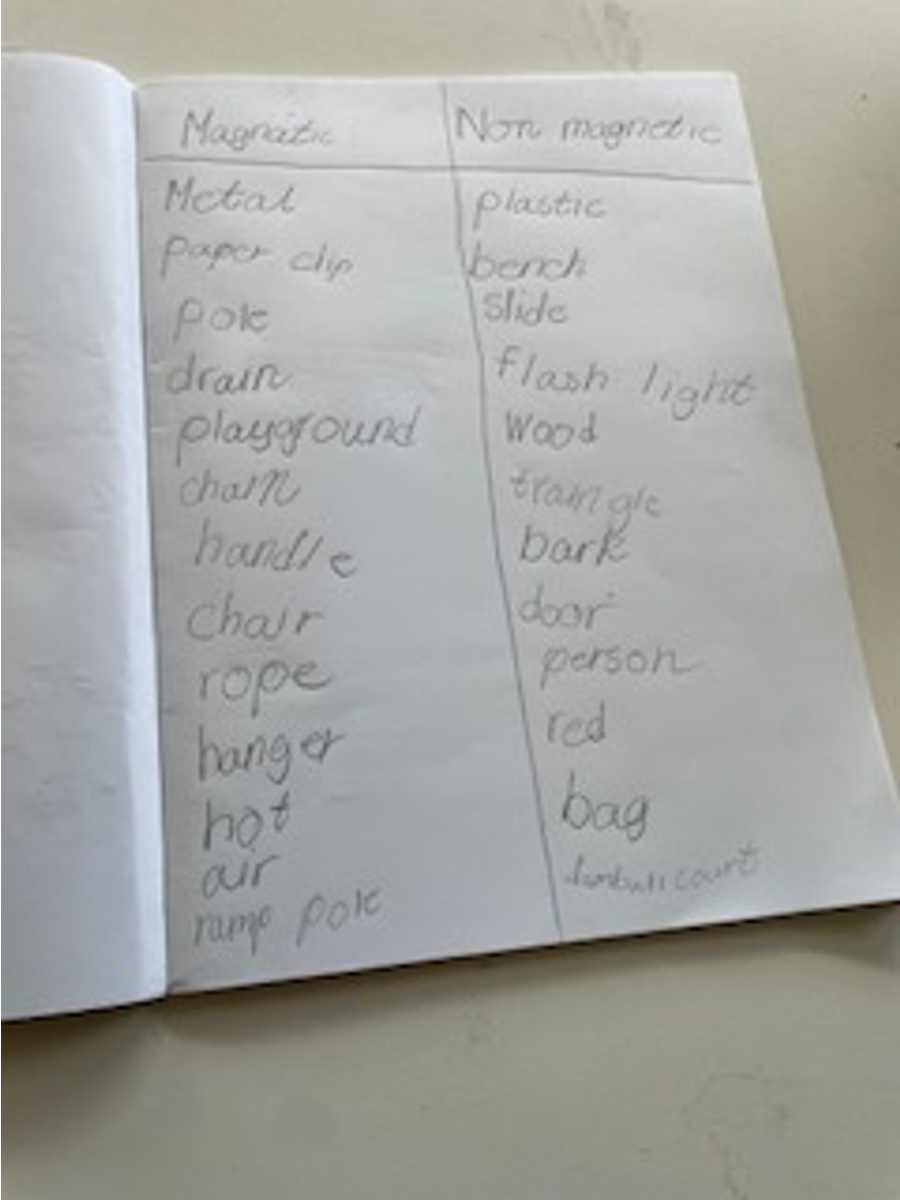 Magnetic
Non magnetic
Metal
paper clip
pole
drain
playground
chain
handle
chair
rope
hanger
hot
air
ramp pole
plastic
bench
slide
flash light
wood
traingle
bark
door
person
red
bag
court